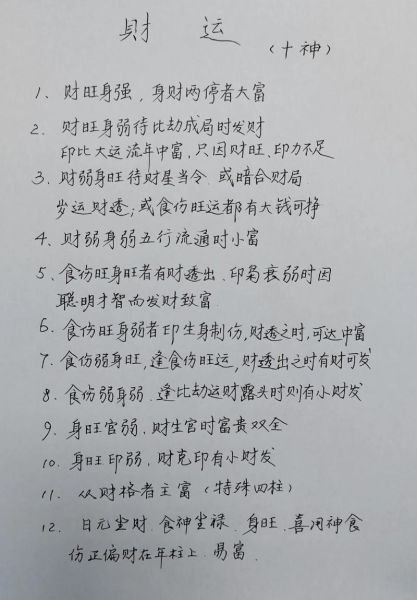 财 运
(十神)
1、财旺身强，身财两停者大富
2、财旺身弱待比劫成局时发财
印比大运流年中富，只因财旺、印力不足
3、财弱身旺待财星当令 或暗合财局
岁运财透；或食伤旺运都有大钱可挣
4、财弱身弱五行流通时小富
5、食伤旺身旺者有财透出、印枭衰弱时因
聪明才智而发财致富
6、食伤旺身弱者印生身制伤，财透之时，可达中富
7、食伤弱身旺，逢食伤旺运，财透出之时有财可发
8、食伤弱身弱、逢比劫运财露头时则有小财发
9、身旺官弱，财生官时富贵双全
10、身旺印弱，财克印有小财发
11、从财格者主富（特殊四柱）
12、日元坐财、食神坐禄、身旺、喜用神食
伤正偏财在年柱上、易富、